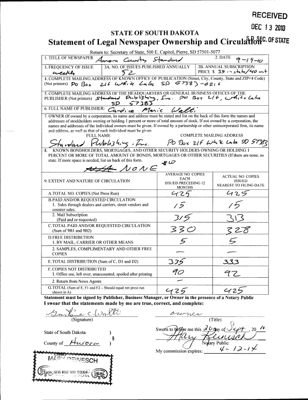 RECEIVED
DEC 13 2010
S.D. SEC. OF STATE
STATE OF SOUTH DAKOTA
Statement of Legal Newspaper Ownership and Circulation
Return to: Secretary of State, 500 E. Capitol, Pierre, SD 57501-5077
1. TITLE OF NEWSPAPER Aurora County Standard
2. DATE 9-17-10
1. FREQUENCY OF ISSUE weekly
3A. NO. OF ISSUES PUBLISHED ANNUALLY 52
3B. ANNUAL SUBSCRIPTION PRICE $
4. COMPLETE MAILING ADDRESS OF KNOWN OFFICE OF PUBLICATION (Street, City, County, State and ZIP+4 Code)
(Not printers) PO Box 216 White Lake SD 57383-0216
5. COMPLETE MAILING ADDRESS OF THE HEADQUARTERS OR GENERAL BUSINESS OFFICES OF THE
PUBLISHER (Not printers) Standard Publishing, Inc. PO Box 216, White Lake
SD 57383
6. FULL NAME OF PUBLISHER
7. OWNER (If owned by a corporation, its name and address must be stated and list on the back of this form the names and
addresses of stockholders owning or holding 1 percent or more of total amount of stock. If not owned by a corporation, the
names and addresses of the individual owners must be given. If owned by a partnership or other unincorporated firm, its name
and address, as well as that of each individual must be given.
FULL NAME
COMPLETE MAILING ADDRESS
Standard Publishing, Inc. PO Box 216 White Lake SD 57383
8. KNOWN BONDHOLDERS, MORTGAGEES, AND OTHER SECURITY HOLDERS OWNING OR HOLDING 1
PERCENT OR MORE OF TOTAL AMOUNT OF BONDS, MORTGAGES OR OTHER SECURITIES (If there are none, so
state. If more space is needed, list on back of this form.
NONE
9. EXTENT AND NATURE OF CIRCULATION
AVERAGE NO. COPIES EACH ISSUED PRECEDING 12 MONTHS
ACTUAL NO. COPIES ISSUED NEAREST TO FILING DATE
A. TOTAL NO. COPIES (Net Press Run) 425 425
B. PAID AND/OR REQUESTED CIRCULATION
1. Sales through dealers and carriers, street vendors and counter sales. 15 15
2. Mail Subscription (Paid and or requested) 315 313
C. TOTAL PAID AND/OR REQUESTED CIRCULATION (Sum of 9B1 and 9B2) 330 328
D. FREE DISTRIBUTION
1. BY MAIL, CARRIER OR OTHER MEANS 5 5
2. SAMPLES, COMPLIMENTARY AND OTHER FREE COPIES
E. TOTAL DISTRIBUTION (Sum of C, D1 and D2) 335 333
F. COPIES NOT DISTRIBUTED
1. Office use, left over, unaccounted, spoiled after printing 90 92
2. Return from News Agents
G. TOTAL (Sum of E, F1 and F2 - Should equal net press run shown in A) 425 425
Statement must be signed by Publisher, Business Manager, or Owner in the presence of a Notary Public
I swear that the statements made by me are true, correct, and complete:
owner
(Signature) (Title)
State of South Dakota )
County of Aurora )
Sworn to before me this day of Sept, 2010
Notary Public
My commission expires: 4-12-14